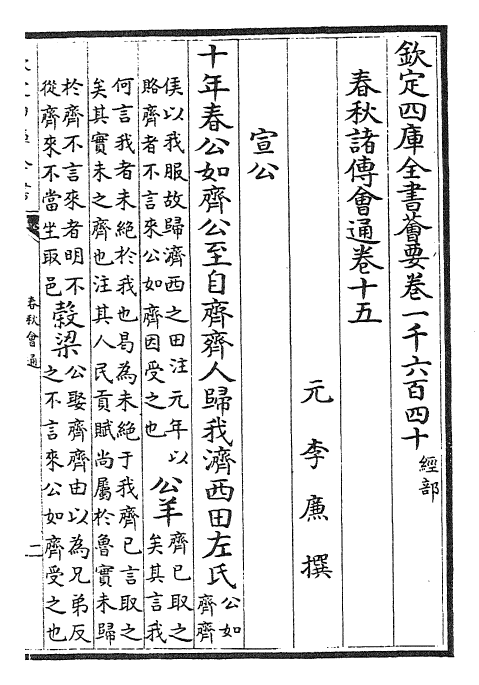 欽定四庫全書薈要卷一千六百四十 經部
春秋諸傳會通卷十五
元 李廉 撰
宣公
十年春公如齊公至自齊齊人歸我濟西田左氏 公如齊齊
侯以我服故歸濟西之田注元年以賂齊者不言來公如齊因受之也 公羊 齊已取之矣其言我
何言我者未絕於我也曷為未絕于我齊已言取之矣其實未之齊也注其人民貢賦尚屬於魯實未歸
於齊不言來者明不從齊來不當坐取邑 穀梁 公娶齊齊由以為兄弟反之不言來公如齊受之也
春秋會通
二